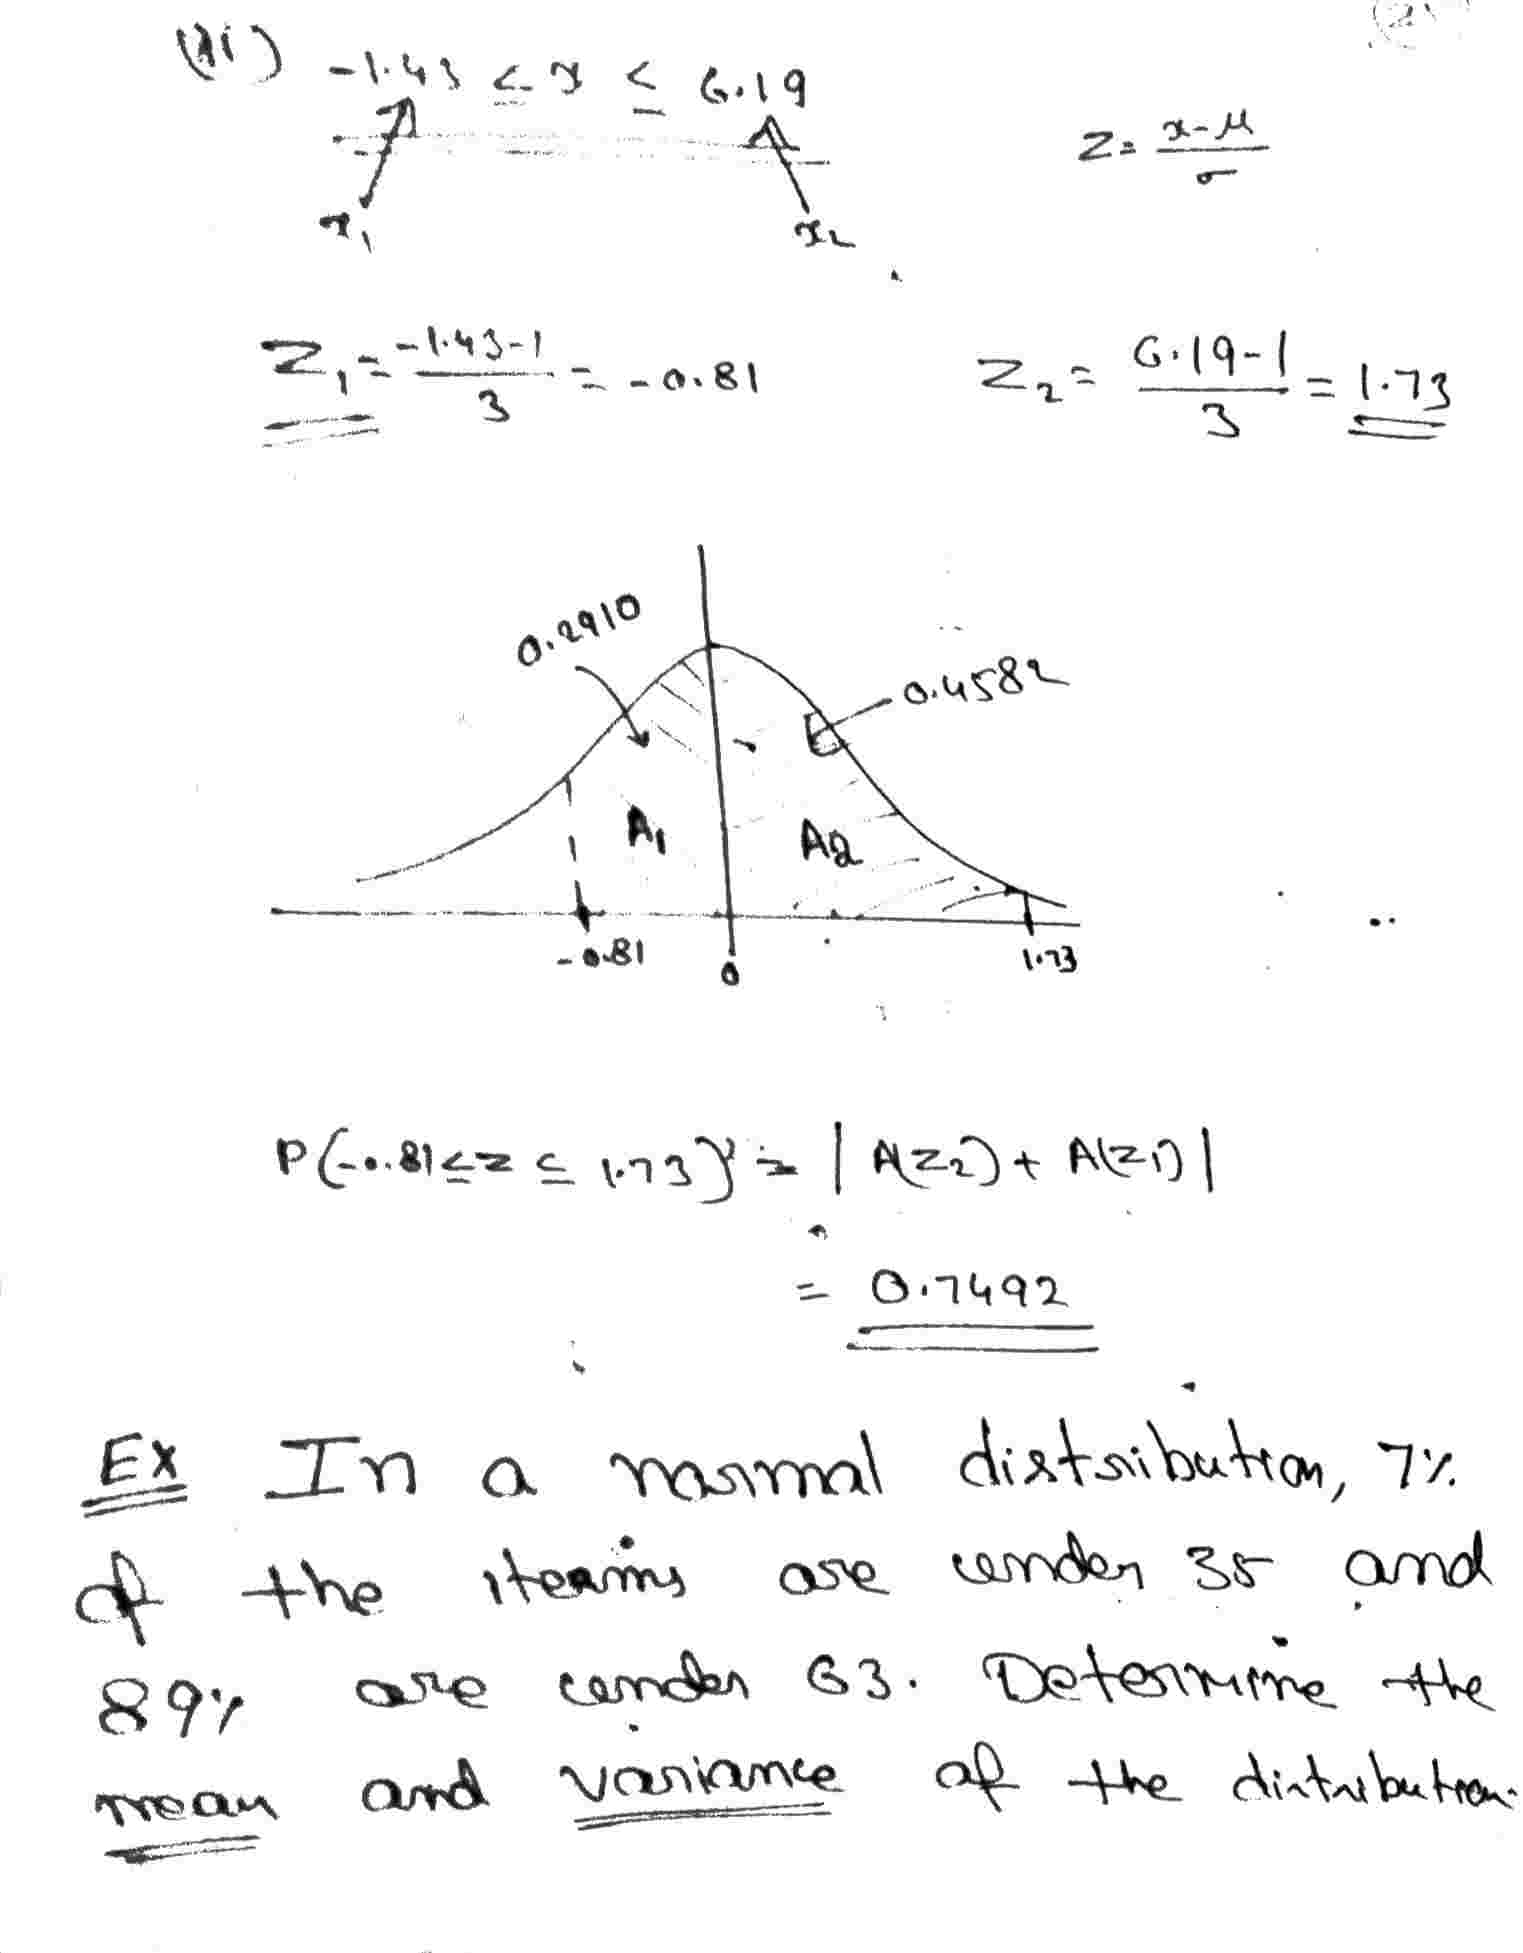 (ii) -1.43 ≤ x ≤ 6.19
x₁ x₂
Z = (x-μ)/σ
Z₁ = (-1.43-1)/3 = -0.81 Z₂ = (6.19-1)/3 = 1.73
0.2910
0.4582
A₁ A2
-0.81 0 1.73
P(-0.81 ≤ z ≤ 1.73) = |A(Z₂) + A(Z₁)|
= 0.7492
Ex In a normal distribution, 7%
of the iteams are under 35 and
89% are under 63. Determine the
mean and variance of the distribution.